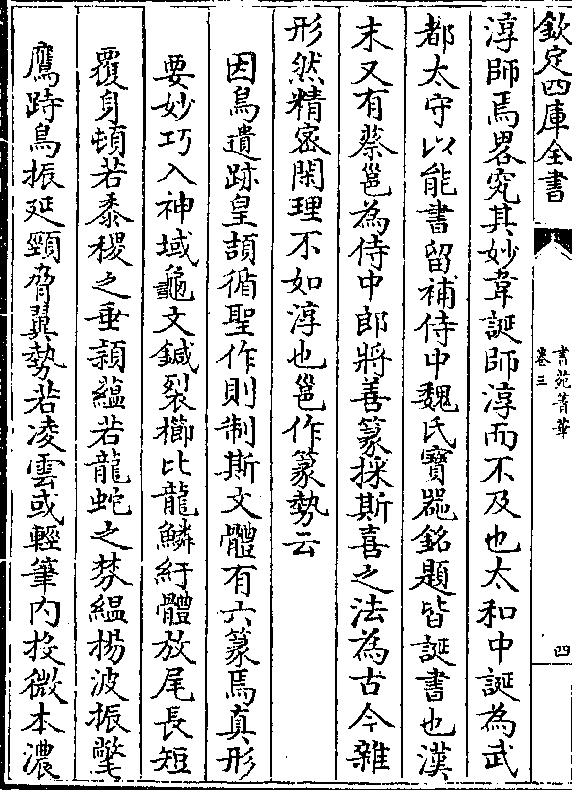 欽定四庫全書
書苑菁華
卷三
四
淳師焉畧究其妙韋誕師淳而不及也太和中誕為武
都太守以能書留補侍中魏氏寶器銘題皆誕書也漢
末又有蔡邕為侍中郎將善篆採斯喜之法為古今雜
形然精密閑理不如淳也邕作篆勢云
因鳥遺跡皇頡循聖作則制斯文體有六篆焉真形
要妙巧入神域龜文鍼裂櫛比龍鱗紆體放尾長短
覆身頓若黍稷之垂穎蘊若龍蛇之棼緼揚波振擎
鷹跱鳥振延頸脅翼勢若凌雲或輕筆内投微本濃